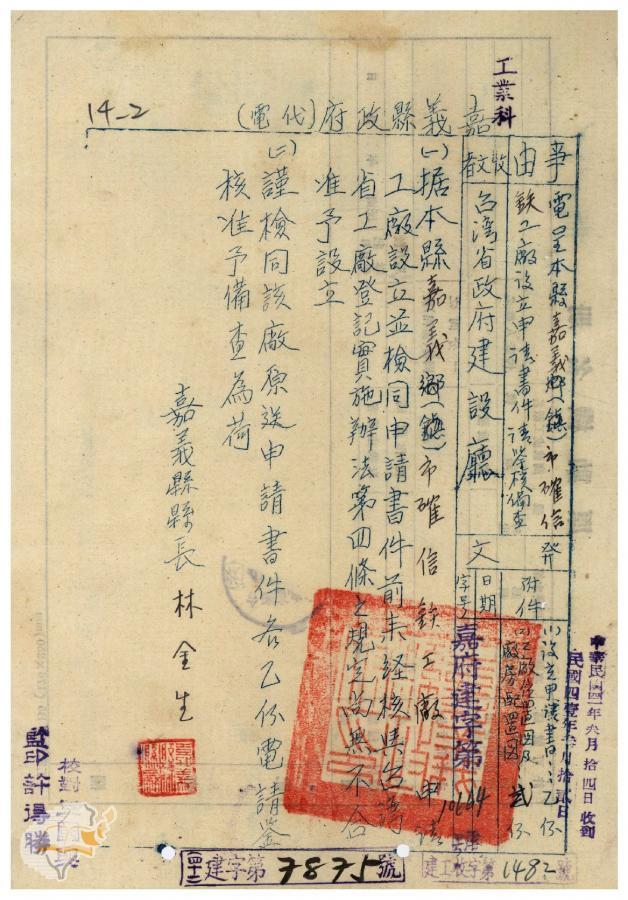 工業科
14-2
嘉義縣政府(代電)
事由
電呈本縣嘉義鄉(鎮)市確信
鉄工廠設立申請書件請鑒核備查
收文者
台湾省政府建設廳
發文
附件
(一)設立申請書:乙份
(二)工廠位置図及
廠房配置図:弍份
日期
字号
嘉府建字第
10164
中華民國四一年六月拾四日收到
民國四壹年六月拾貳日
(一)据本縣嘉義鄉(鎮)市確信鉄工廠申請
工廠設立並檢同申請書件前来経核與台湾
省工廠登記實施辦法第四條之規定尚無不合
准予設立
(二)謹檢同該廠原送申請書件各乙份電請鑒
核准予備查為荷
嘉義縣縣長林金生
校對
監印許得勝
(四十一)建字第7875號
建工收字第1482號